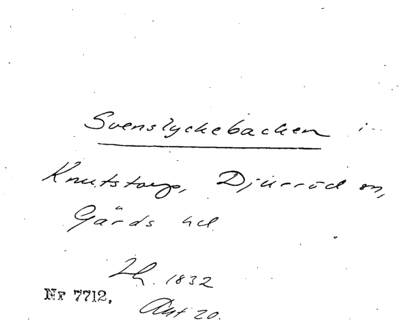 Svenslyckebacken i
Knutstorp, Djurröd sn,
Gärds hd
Lh. 1832
Nr 7712. Akt 20.